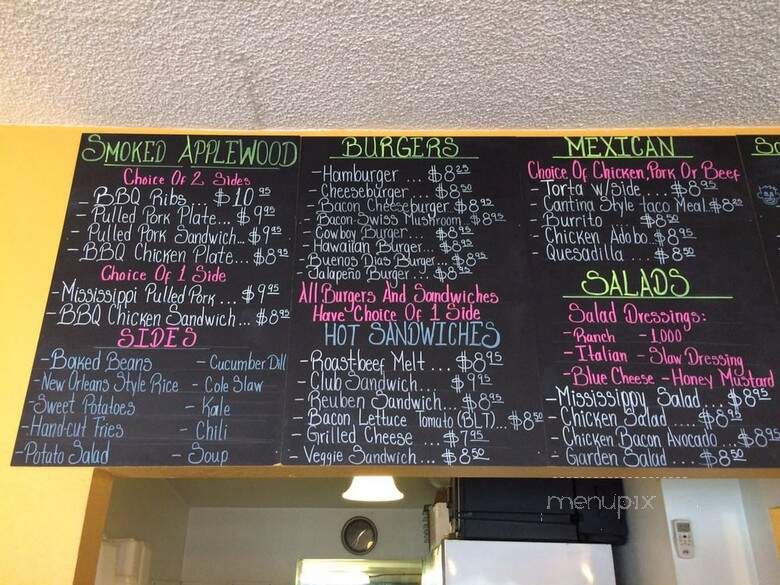 SMOKED APPLEWOOD
Choice Of 2 Sides
- BBQ Ribs... $10.95
- Pulled Pork Plate... $9.95
- Pulled Pork Sandwich... $9.95
- BBQ Chicken Plate... $8.95
Choice Of 1 Side
- Mississippi Pulled Pork... $9.95
- BBQ Chicken Sandwich... $8.95
SIDES
- Baked Beans
- New Orleans Style Rice
- Sweet Potatoes
- Hand-cut Fries
- Potato Salad
- Cucumber Dill
- Cole Slaw
- Kale
- Chili
- Soup
BURGERS
- Hamburger... $8.25
- Cheeseburger... $8.50
- Bacon Cheeseburger. $8.95
- Bacon Swiss Mushroom. $8.95
- Cowboy Burger... $8.95
- Hawaiian Burger... $8.95
- Buenos Dias Burger... $8.95
- Jalapeño Burger... $8.50
All Burgers And Sandwiches
Have Choice Of 1 Side
HOT SANDWICHES
- Roastbeef Melt... $8.95
- Club Sandwich... $9.95
- Reuben Sandwich... $8.95
- Bacon Lettuce Tomato (BLT)... $8.50
- Grilled Cheese... $7.95
- Veggie Sandwich... $8.50
MEXICAN
Choice Of Chicken, Pork Or Beef
- Torta w/side.... $8.95
- Cantina Style taco Meal. $8.95
- Burrito $8.50
- Chicken Adobo. $8.95
- Quesadilla... $8.50
SALADS
Salad Dressings:
- Ranch - 1,000
- Italian - Slaw Dressing
- Blue Cheese - Honey Mustard
- Mississippy Salad... $8.95
- Chicken Salad..... $8.50
- Chicken Bacon Avocado... $8.95
- Garden Salad.... $8.50
menupix